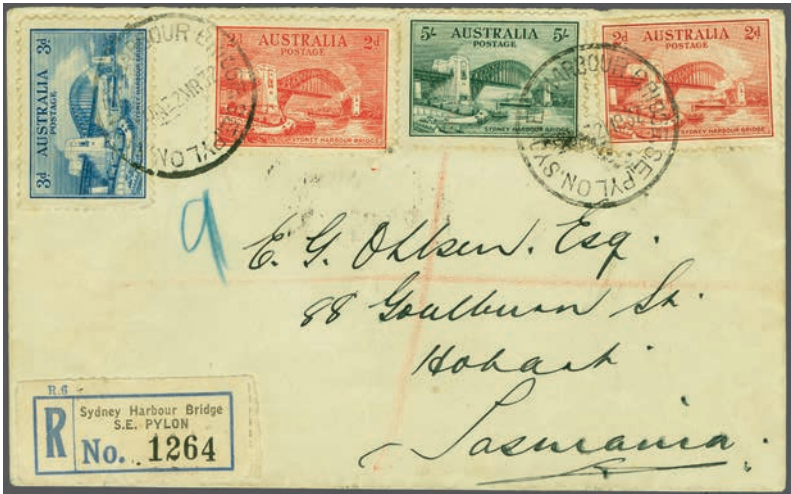 3d AUSTRALIA 3d
POSTAGE
SYDNEY HARBOUR BRIDGE
2d AUSTRALIA 2d
POSTAGE
SYDNEY HARBOUR BRIDGE
5/- AUSTRALIA 5/-
POSTAGE
SYDNEY HARBOUR BRIDGE
AUSTRALIA 2d
POSTAGE
SYDNEY HARBOUR BRIDGE
HARBOUR BRIDGE
PYLON
HARBOUR BRIDGE S.E. PYLON SY
9
E. G. Ohlsen. Esq.
88 Goulburn St.
Hobart
Tasmania.
R.6
R
Sydney Harbour Bridge
S.E. PYLON
No. 1264